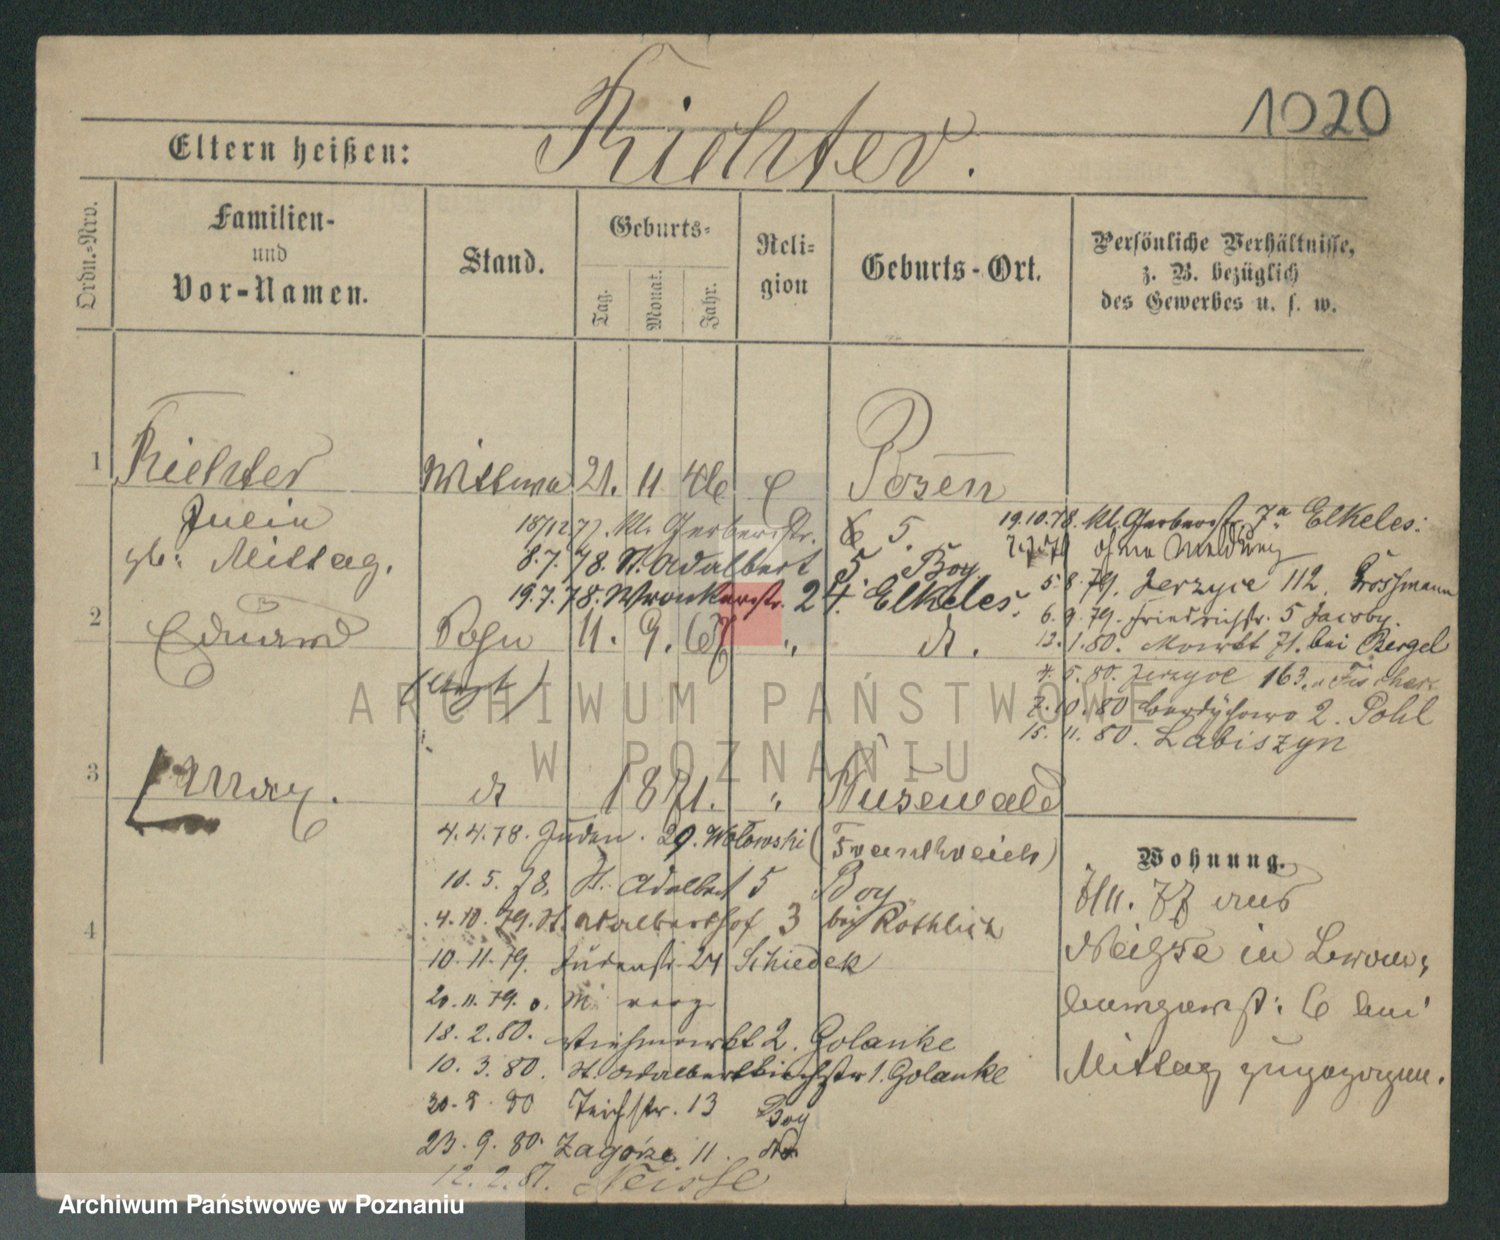 1020
Eltern heißen: Richter.
Ordn.-Nro.
Familien-
und
Vor-Namen.
Stand.
Geburts-
Tag.
Monat.
Jahr.
Reli-
gion
Geburts-Ort.
Persönliche Verhältnisse,
z. B. bezüglich
des Gewerbes u. s. w.
1 Richter Wittwe 21. 11 46 Posen
geb: Mittag.
18/12 77. Kl. Gerberstr. 5.
8.7.78. St. Adalbert 5. Boy
19.7.78. Wronkerstr. 24. Elkeles.
19.10.78. Kl. Gerberstr. 7a Elkeles.
ohne Meldung
5.8.79. Jerzyce 112. Grossmann
6.9.79. Friedrichstr. 5 Jacoby.
13.1.80. Markt 71. bei Bergel
4.5.80. Jerzyce 163. Fischer
7.10.80 2. Pohl
15.11.80. Labiszyn
2 Eduard Sohn 11. 9. 67 " d.
3 Max. d 1871. " Nusewald
(Frankreich)
4.4.78. Juden. 29. Wołowski
10.5.78. St. Adalbert 5 Boy
4.10.79. St. Adalberthof 3 bei Röthlich
10.11.79. Judenstr. 24 Schiedek
20.11.79. o. M.
18.2.80. Viehmarkt 2. Golanke
10.3.80. St. Adalbertkirchstr 1. Golanke
Teichstr. 13 Boy
23.9.80. Zagórze 11. do
12.2.81. Neisse
4
Wohnung.
77 aus
Neisse in
6 bei
Mittag zugezogen.
ARCHIWUM PAŃSTWOWE
W POZNANIU
Archiwum Państwowe w Poznaniu